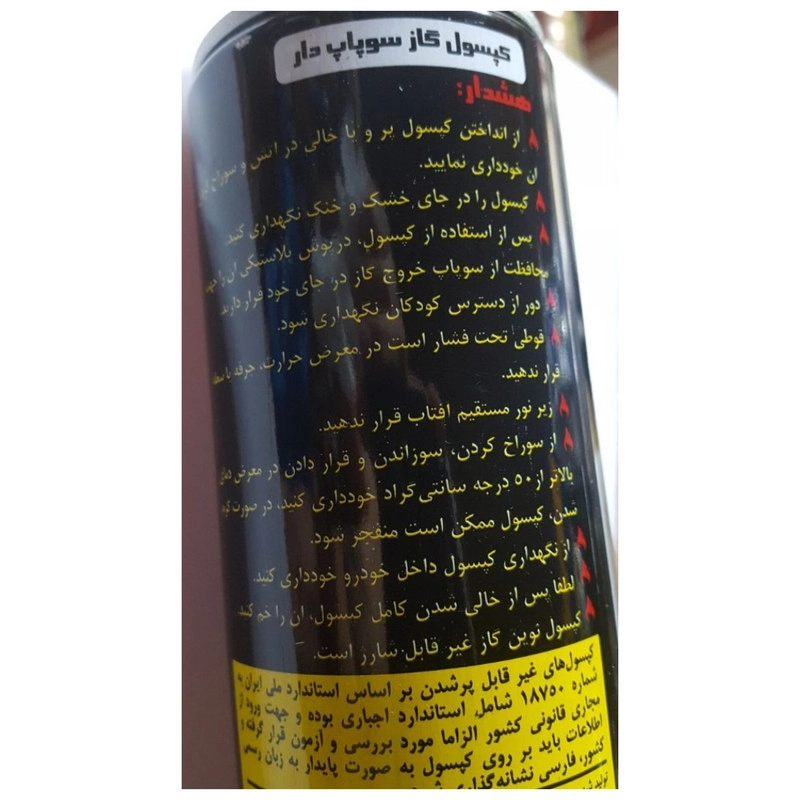 کپسول گاز سوپاپ دار
هشدار:
از انداختن کپسول پر و یا خالی در آتش و سوراخ کردن
ان خودداری نمایید.
کپسول را در جای خشک و خنک نگهداری کنید.
پس از استفاده از کپسول، درپوش پلاستیکی ان را جهت
محافظت از سوپاپ خروج گاز در جای خود قرار دارید.
دور از دسترس کودکان نگهداری شود.
قوطی تحت فشار است در معرض حرارت، جرقه یا شعله
قرار ندهید.
زیر نور مستقیم افتاب قرار ندهید.
از سوراخ کردن، سوزاندن و قرار دادن در معرض دمای
بالاتر از ۵۰ درجه سانتی گراد خودداری کنید، در صورت گرم
شدن، کپسول ممکن است منفجر شود.
از نگهداری کپسول داخل خودرو خودداری کنید.
لطفا پس از خالی شدن کامل کپسول، ان را خم کنید.
کپسول نوین گاز غیر قابل شارژ است.
کپسول‌های غیر قابل پرشدن بر اساس استاندارد ملی ایران به
شماره ۱۸۷۵۰ شامل استاندارد اجباری بوده و جهت ورود از
مجاری قانونی کشور الزاما مورد بررسی و آزمون قرار گرفته و
اطلاعات باید بر روی کپسول به صورت پایدار به زبان رسمی
کشور، فارسی نشانه‌گذاری
تولید